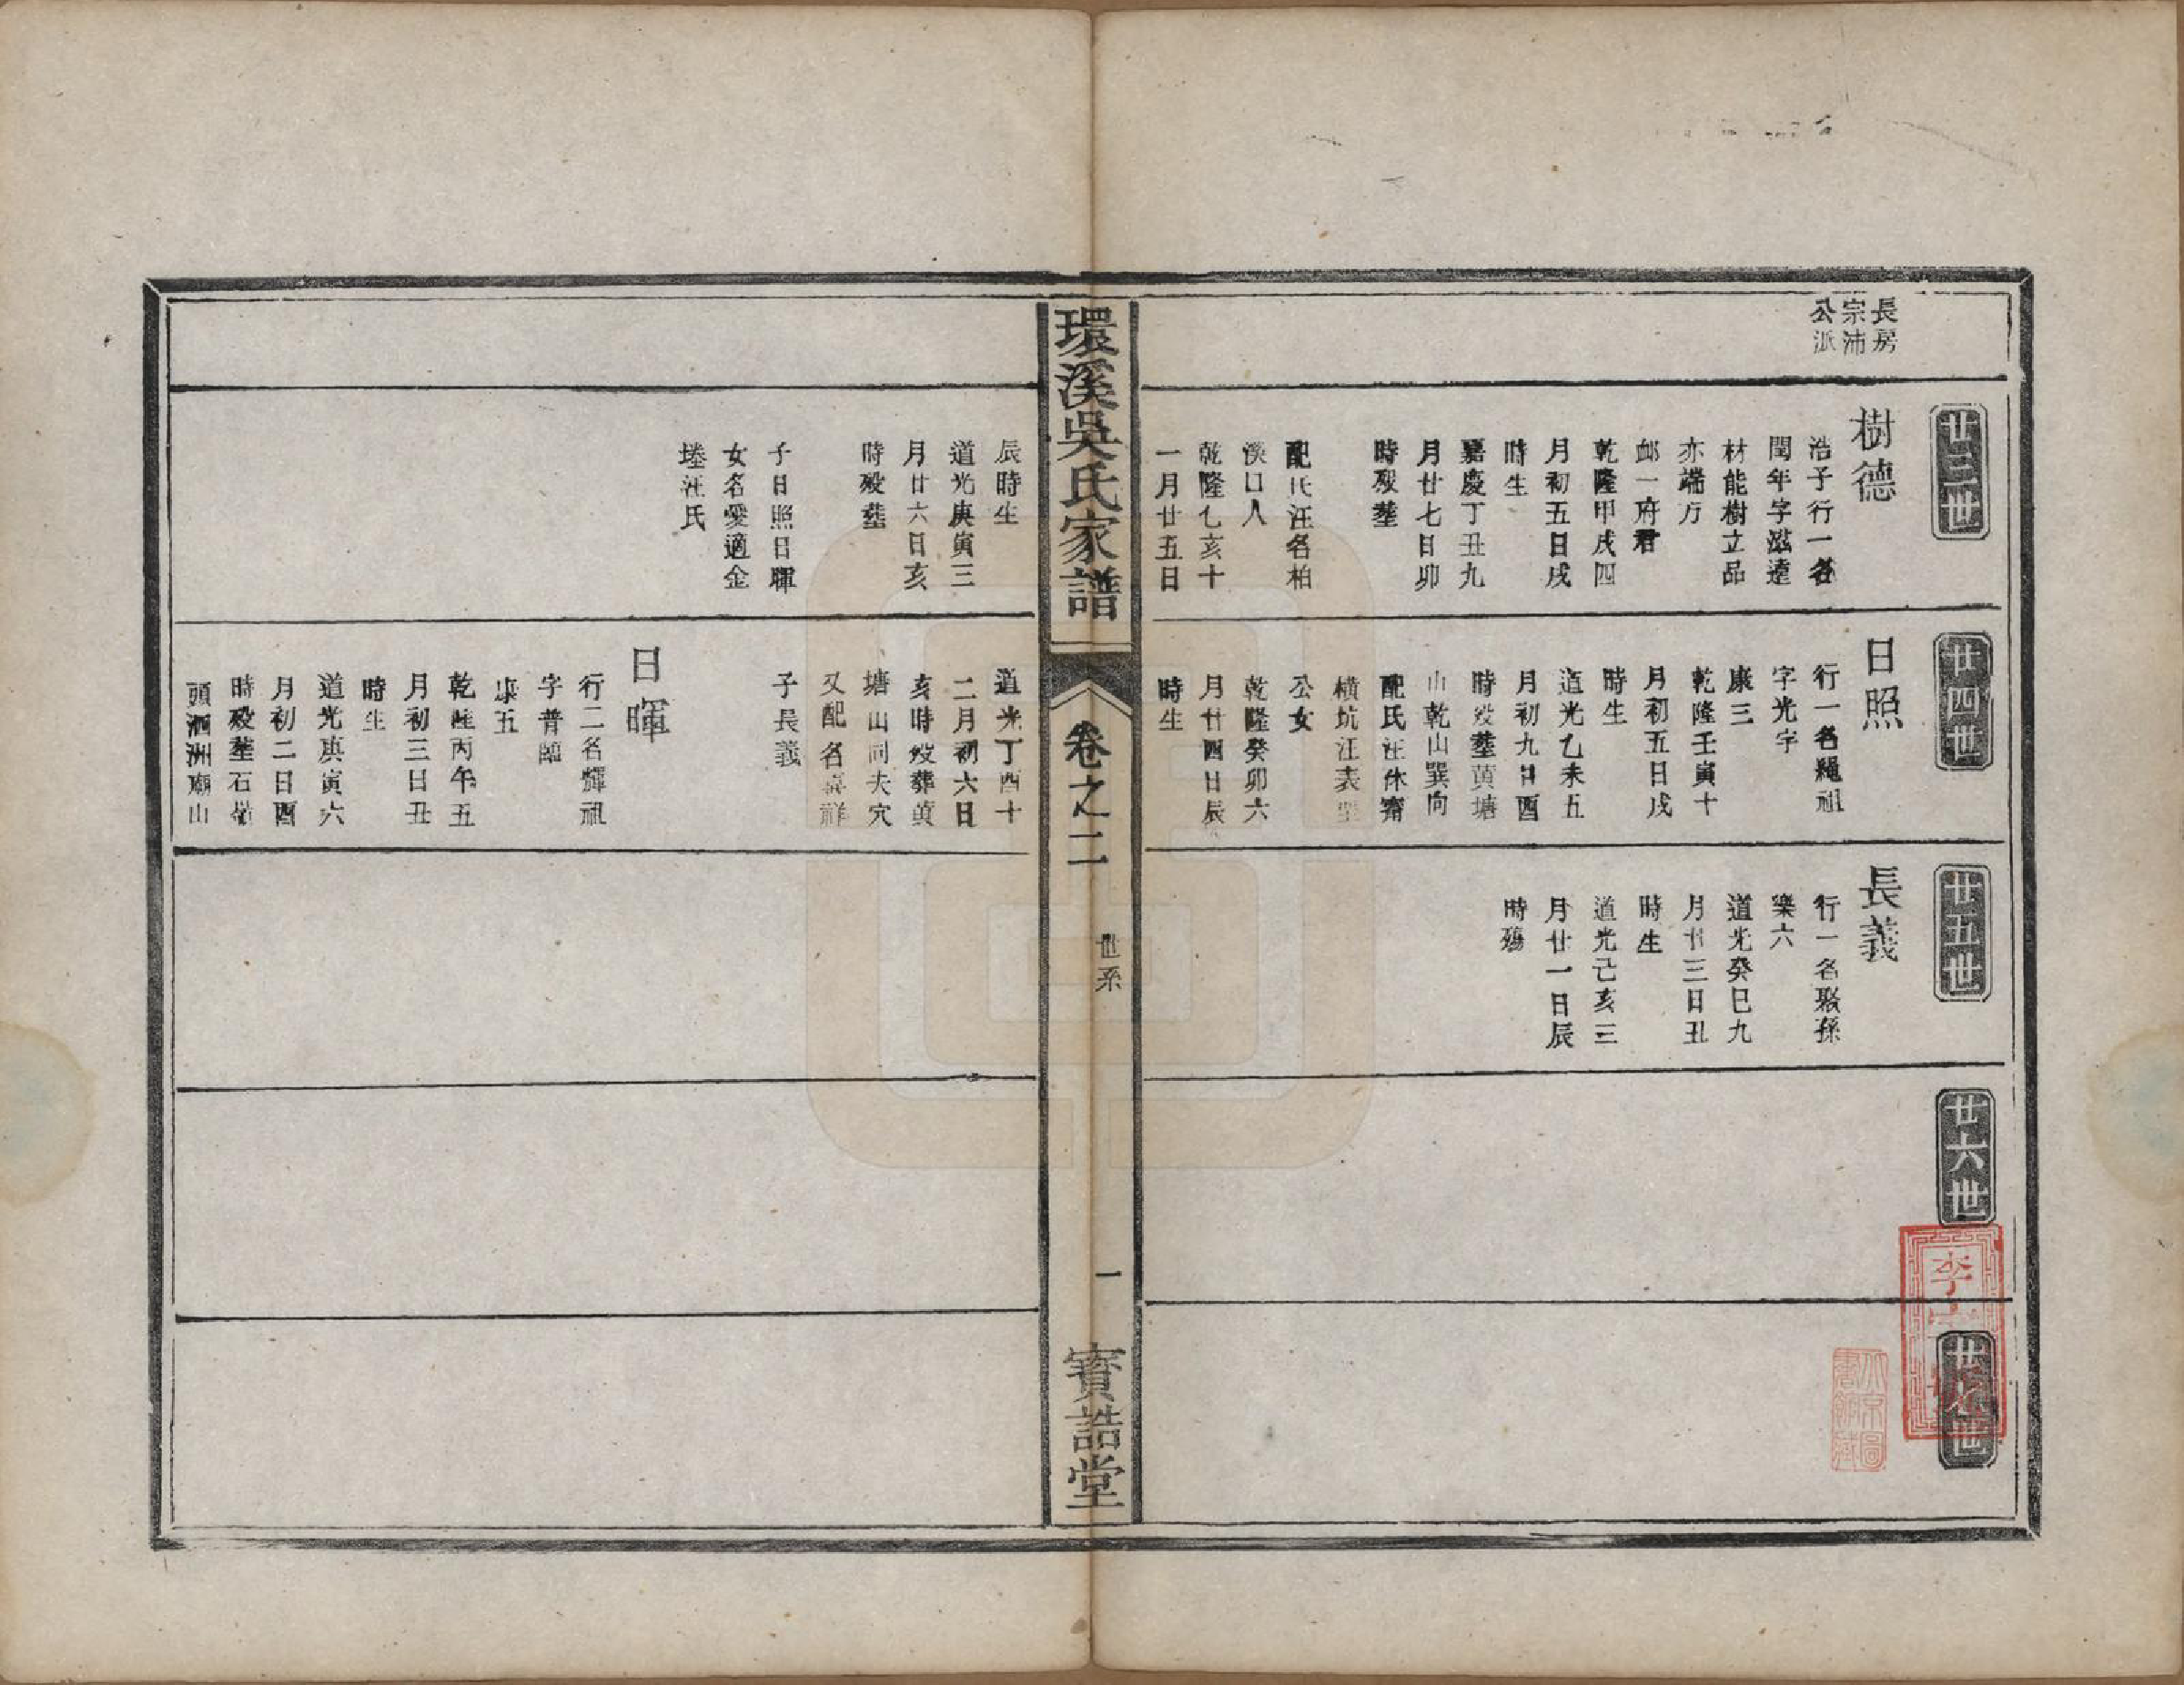 長房
宗沛
公派
廿三世
樹德
浩子行一名
閏年字滋達
材能樹立品
亦端方
邮一府君
乾隆甲戌四
月初五日戌
時生
嘉慶丁丑九
月廿七日卯
時歿塟
配氏汪名柏
溪口人
乾隆乙亥十
一月廿五日
辰時生
道光庚寅三
月廿六日亥
時歿塟
子日照日暉
女名愛適金
塟汪氏
廿四世
日照
行一名繩祖
字光字
康三
乾隆壬寅十
月初五日戌
時生
道光乙未五
月初九日酉
時歿塟黄塘
山乾山巽向
配氏汪休甯
橫坑汪表
公女
乾隆癸卯六
月廿四日辰
時生
道光丁酉十
二月初六日
亥時歿葬黄
塘山同夫穴
又配名嘉祥
子長義
日暉
行二名輝祖
字普臨
康五
乾隆丙午五
月初三日丑
時生
道光庚寅六
月初二日酉
時歿塟石嶺
頭泗洲廟山
廿五世
長義
行一名聚孫
樂六
道光癸巳九
月廿三日丑
時生
道光己亥三
月廿一日辰
時殤
廿六世
廿七世
環溪吳氏家譜
卷之二
世系
一
寳誥堂
北京圖
書館藏